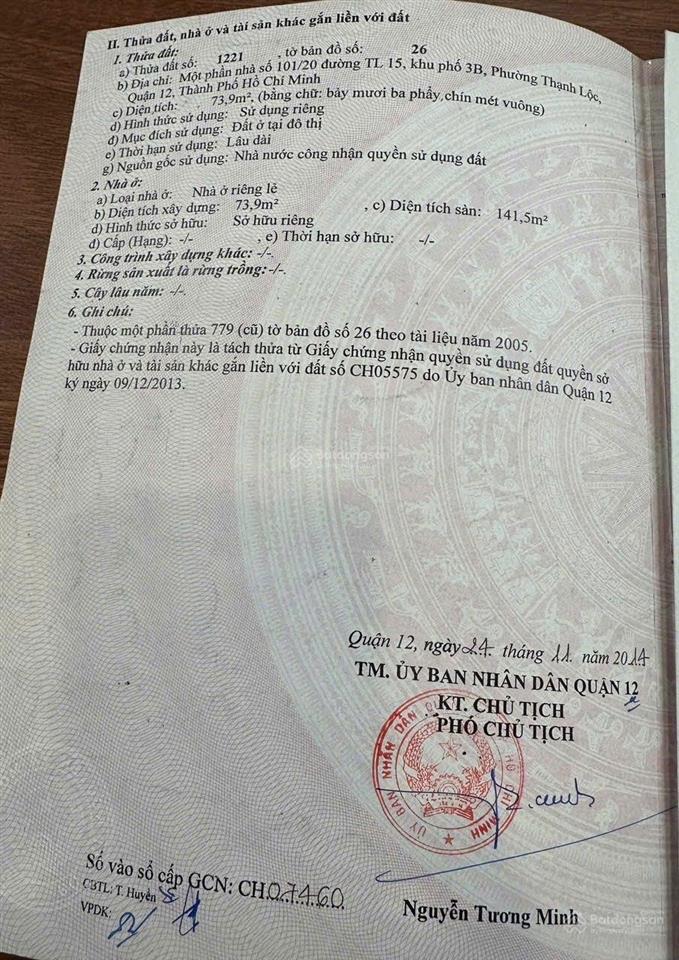 II. Thửa đất, nhà ở và tài sản khác gắn liền với đất
1. Thửa đất:
a) Thửa đất số: 1221 , tờ bản đồ số: 26
b) Địa chỉ: Một phần nhà số 101/20 đường TL 15, khu phố 3B, Phường Thạnh Lộc,
Quận 12, Thành Phố Hồ Chí Minh
c) Diện tích: 73,9m², (bằng chữ: bảy mươi ba phẩy chín mét vuông)
d) Hình thức sử dụng: Sử dụng riêng
đ) Mục đích sử dụng: Đất ở tại đô thị
e) Thời hạn sử dụng: Lâu dài
g) Nguồn gốc sử dụng: Nhà nước công nhận quyền sử dụng đất
2. Nhà ở:
a) Loại nhà ở: Nhà ở riêng lẻ
b) Diện tích xây dựng: 73,9m² , c) Diện tích sàn: 141,5m²
d) Hình thức sở hữu: Sở hữu riêng
đ) Cấp (Hạng): -/- , e) Thời hạn sở hữu: -/-
3. Công trình xây dựng khác: -/-.
4. Rừng sản xuất là rừng trồng: -/-.
5. Cây lâu năm: -/-.
6. Ghi chú:
- Thuộc một phần thửa 779 (cũ) tờ bản đồ số 26 theo tài liệu năm 2005.
- Giấy chứng nhận này là tách thửa từ Giấy chứng nhận quyền sử dụng đất quyền sở
hữu nhà ở và tài sản khác gắn liền với đất số CH05575 do Ủy ban nhân dân Quận 12
ký ngày 09/12/2013.
Batdongsan
Quận 12, ngày 24 tháng 11 năm 2014
TM. ỦY BAN NHÂN DÂN QUẬN 12
KT. CHỦ TỊCH
PHÓ CHỦ TỊCH
ỦY BAN NHÂN DÂN
HỒ CHÍ MINH
Số vào sổ cấp GCN: CH07460
CBTL: T. Huyền
VPĐK:
Nguyễn Tương Minh
Batdongsan